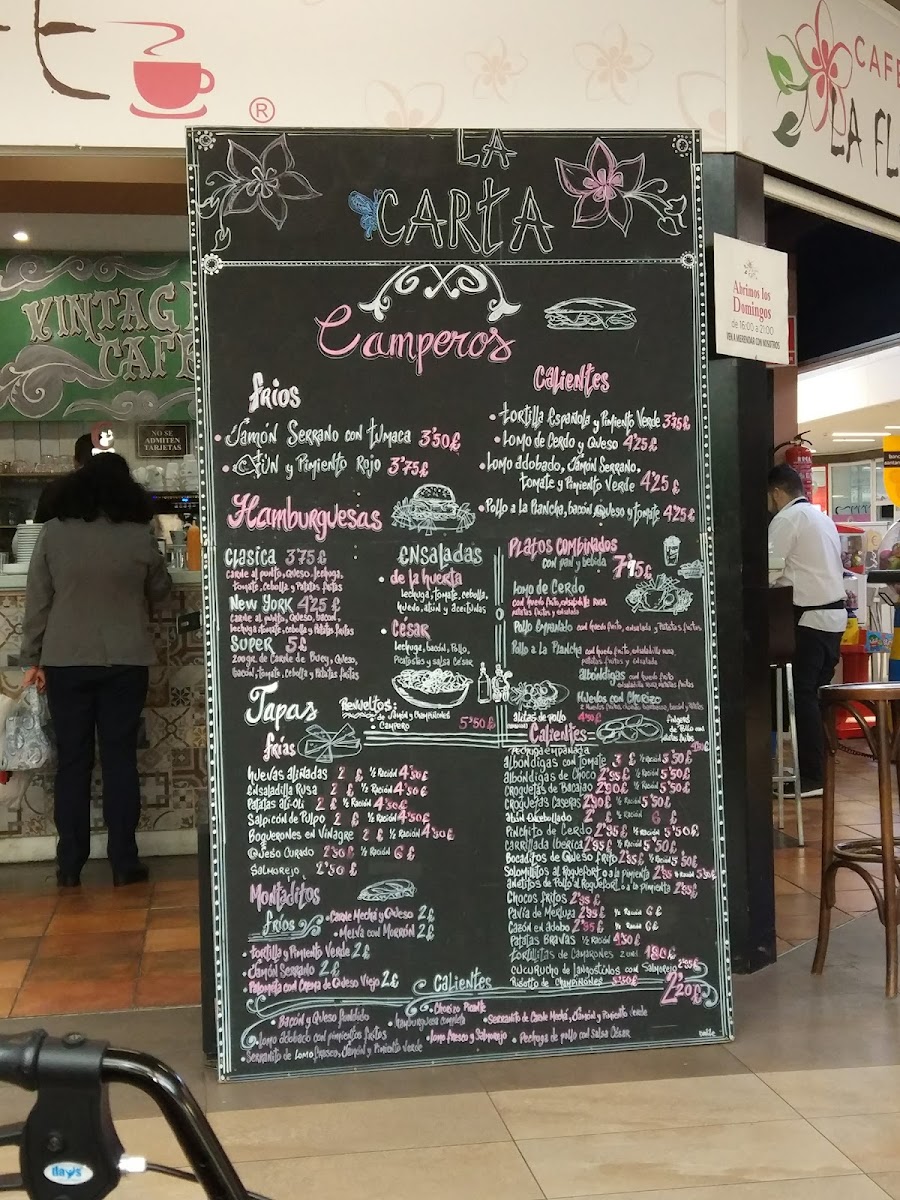 ®
CAFE
LA FL
LA
CARTA
VINTAG
CAFE
NO SE
ADMITEN
TARJETAS
Abrimos los
Domingos
de 16:00 a 21:00
VEN A MERENDAR CON NOSOTROS
Camperos
fríos
• Jamón Serrano con tumaca 3'50£
• Atún y Pimiento Rojo 3'75£
Calientes
• tortilla Española y Pimiento Verde 3'75£
• Lomo de Cerdo y Queso 4'25£
• Lomo adobado, Jamón Serrano,
tomate y Pimiento Verde 4'25£
• Pollo a la Plancha, bacón, Queso y tomate 4'25£
Hamburguesas
Clasica 3'75£
carne al punto, Queso, lechuga,
tomate, cebolla y Patatas fritas
New York 4'25£
carne al punto, Queso, bacon,
lechuga, tomate, cebolla y Patatas fritas
Super 5£
200gr. de Carne de Buey, Queso,
bacón, tomate, cebolla y Patatas fritas
Ensaladas
• de la huerta
lechuga, tomate, cebolla,
huevo, atún y aceitunas
• César
lechuga, bacón, Pollo,
Picatostes y salsa César
Platos Combinados
con pan y bebida 7'15£
Lomo de Cerdo
Pollo Empanado con huevo frito, ensalada y Patatas fritas
Pollo a la Plancha
patatas fritas y ensalada
albóndigas con huevo frito
Huevos con Chorizo
alitas de pollo 4'50£
Tapas
Revueltos:
de Jamón y Champiñones
• Campero 5'50£
frías
huevas aliñadas 2 £ ½ Ración 4'50£
Ensaladilla Rusa 2 £ ½ Ración 4'50£
Patatas Ali-Oli 2 £ ½ Ración 4'50£
Salpicón de Pulpo 2 £ ½ Ración 4'50£
Boquerones en Vinagre 2 £ ½ Ración 4'50£
Queso Curado 2'50£ ½ Ración 6£
Salmorejo 2'50£
Calientes
Pechuga empanada
albóndigas con Tomate 3 £ ½ Ración 5'50£
albóndigas de Choco 2'95£ ½ Ración 5'50£
Croquetas de Bacalao 2'90£ ½ Ración 5'50£
Croquetas Caseras 2'90£ ½ Ración 5'50£
Atún Encebollado 2'
Pinchito de Cerdo 2'95£ ½ Ración 5'50£
Carrillada Ibérica 2'95£ ½ Ración 5£
Bocaditos de Queso frito 2'95£ ½ Ración 5'50£
Solomillitos al Roquefort o a la pimienta 2'95£ ½ Ración 5'50£
Chocos fritos 2'95£
Pavía de Merluza 2'95£ ½ Ración 6£
Cazón en adobo 2'95£ ½ Ración 6£
Patatas Bravas ½ Ración 4'50£
tortillitas de Camarones 2 und. 1'80£
Cucurucho de Langostinos con Salmorejo 2'95£
Risotto de Champiñones 5'50£
Montaditos
fríos
• Carne Mechá y Queso 2£
• Melva con Morrón 2£
• tortilla y Pimiento Verde 2£
• Jamón Serrano 2£
• Palometa con Crema de Queso Viejo 2£
Calientes 2'20£
• Bacon y Queso fundido
• Chorizo Picante
• Hamburguesa completa
• Serranito de Carne Mechá, Jamón y Pimiento Verde
• Lomo adobado con pimientos fritos
• Lomo fresco y Salmorejo
• Pechuga de pollo con Salsa César
• Serranito de Lomo fresco, Jamón y Pimiento Verde
days